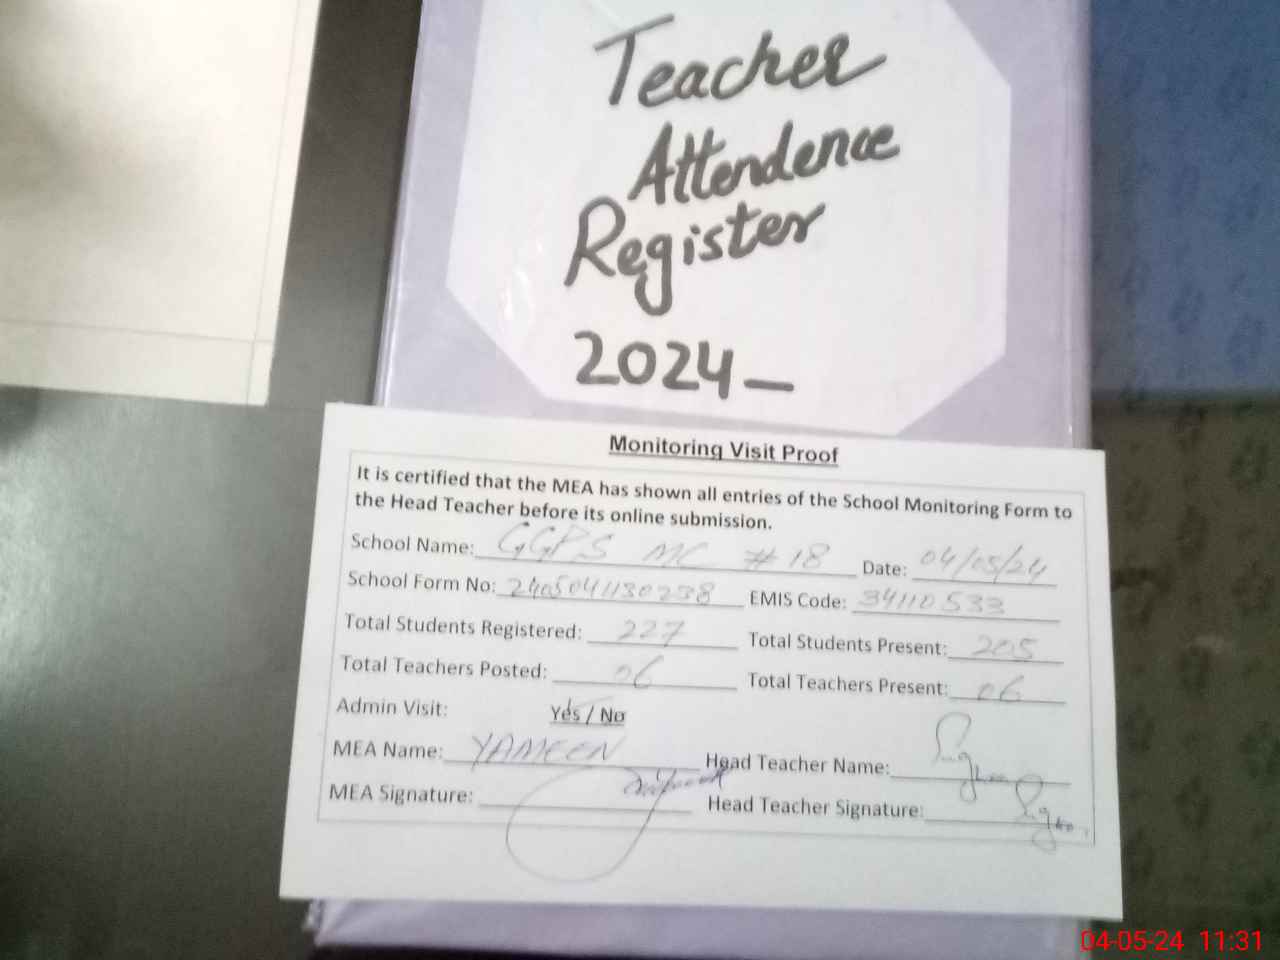 Teacher
Attendence
Register
2024_
Monitoring Visit Proof
It is certified that the MEA has shown all entries of the School Monitoring Form to
the Head Teacher before its online submission.
School Name: GGPS MC # 18 Date: 04/05/24
School Form No: 2405041130238 EMIS Code: 34110533
Total Students Registered: 227 Total Students Present: 205
Total Teachers Posted: 06 Total Teachers Present: 06
Admin Visit: Yes / No
MEA Name: YAMEEN Head Teacher Name:
MEA Signature: Head Teacher Signature:
04-05-24 11:31